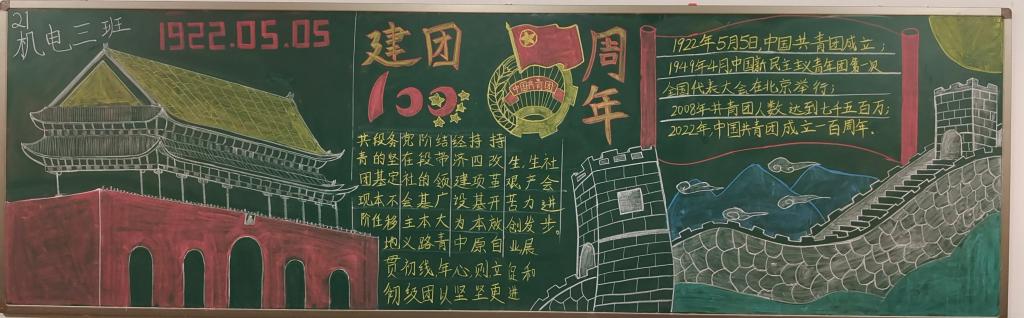 21
机电三班
1922.05.05
建团
100
周年
中国共青团
共青团现阶
段的基本任
务坚定不移地贯彻
党在社会主义初级
阶段的基本路线团
结带领广大青年以
经济建设为中心坚
持四项基本原则坚
持改革开放自立更
生.艰苦创业促进
生产力发展和
社会进步。
1922年5月5日,中国共青团成立;
1949年4月中国新民主主义青年团第一次
全国代表大会在北京举行;
2008年共青团人数达到七千五百万;
2022年,中国共青团成立一百周年.